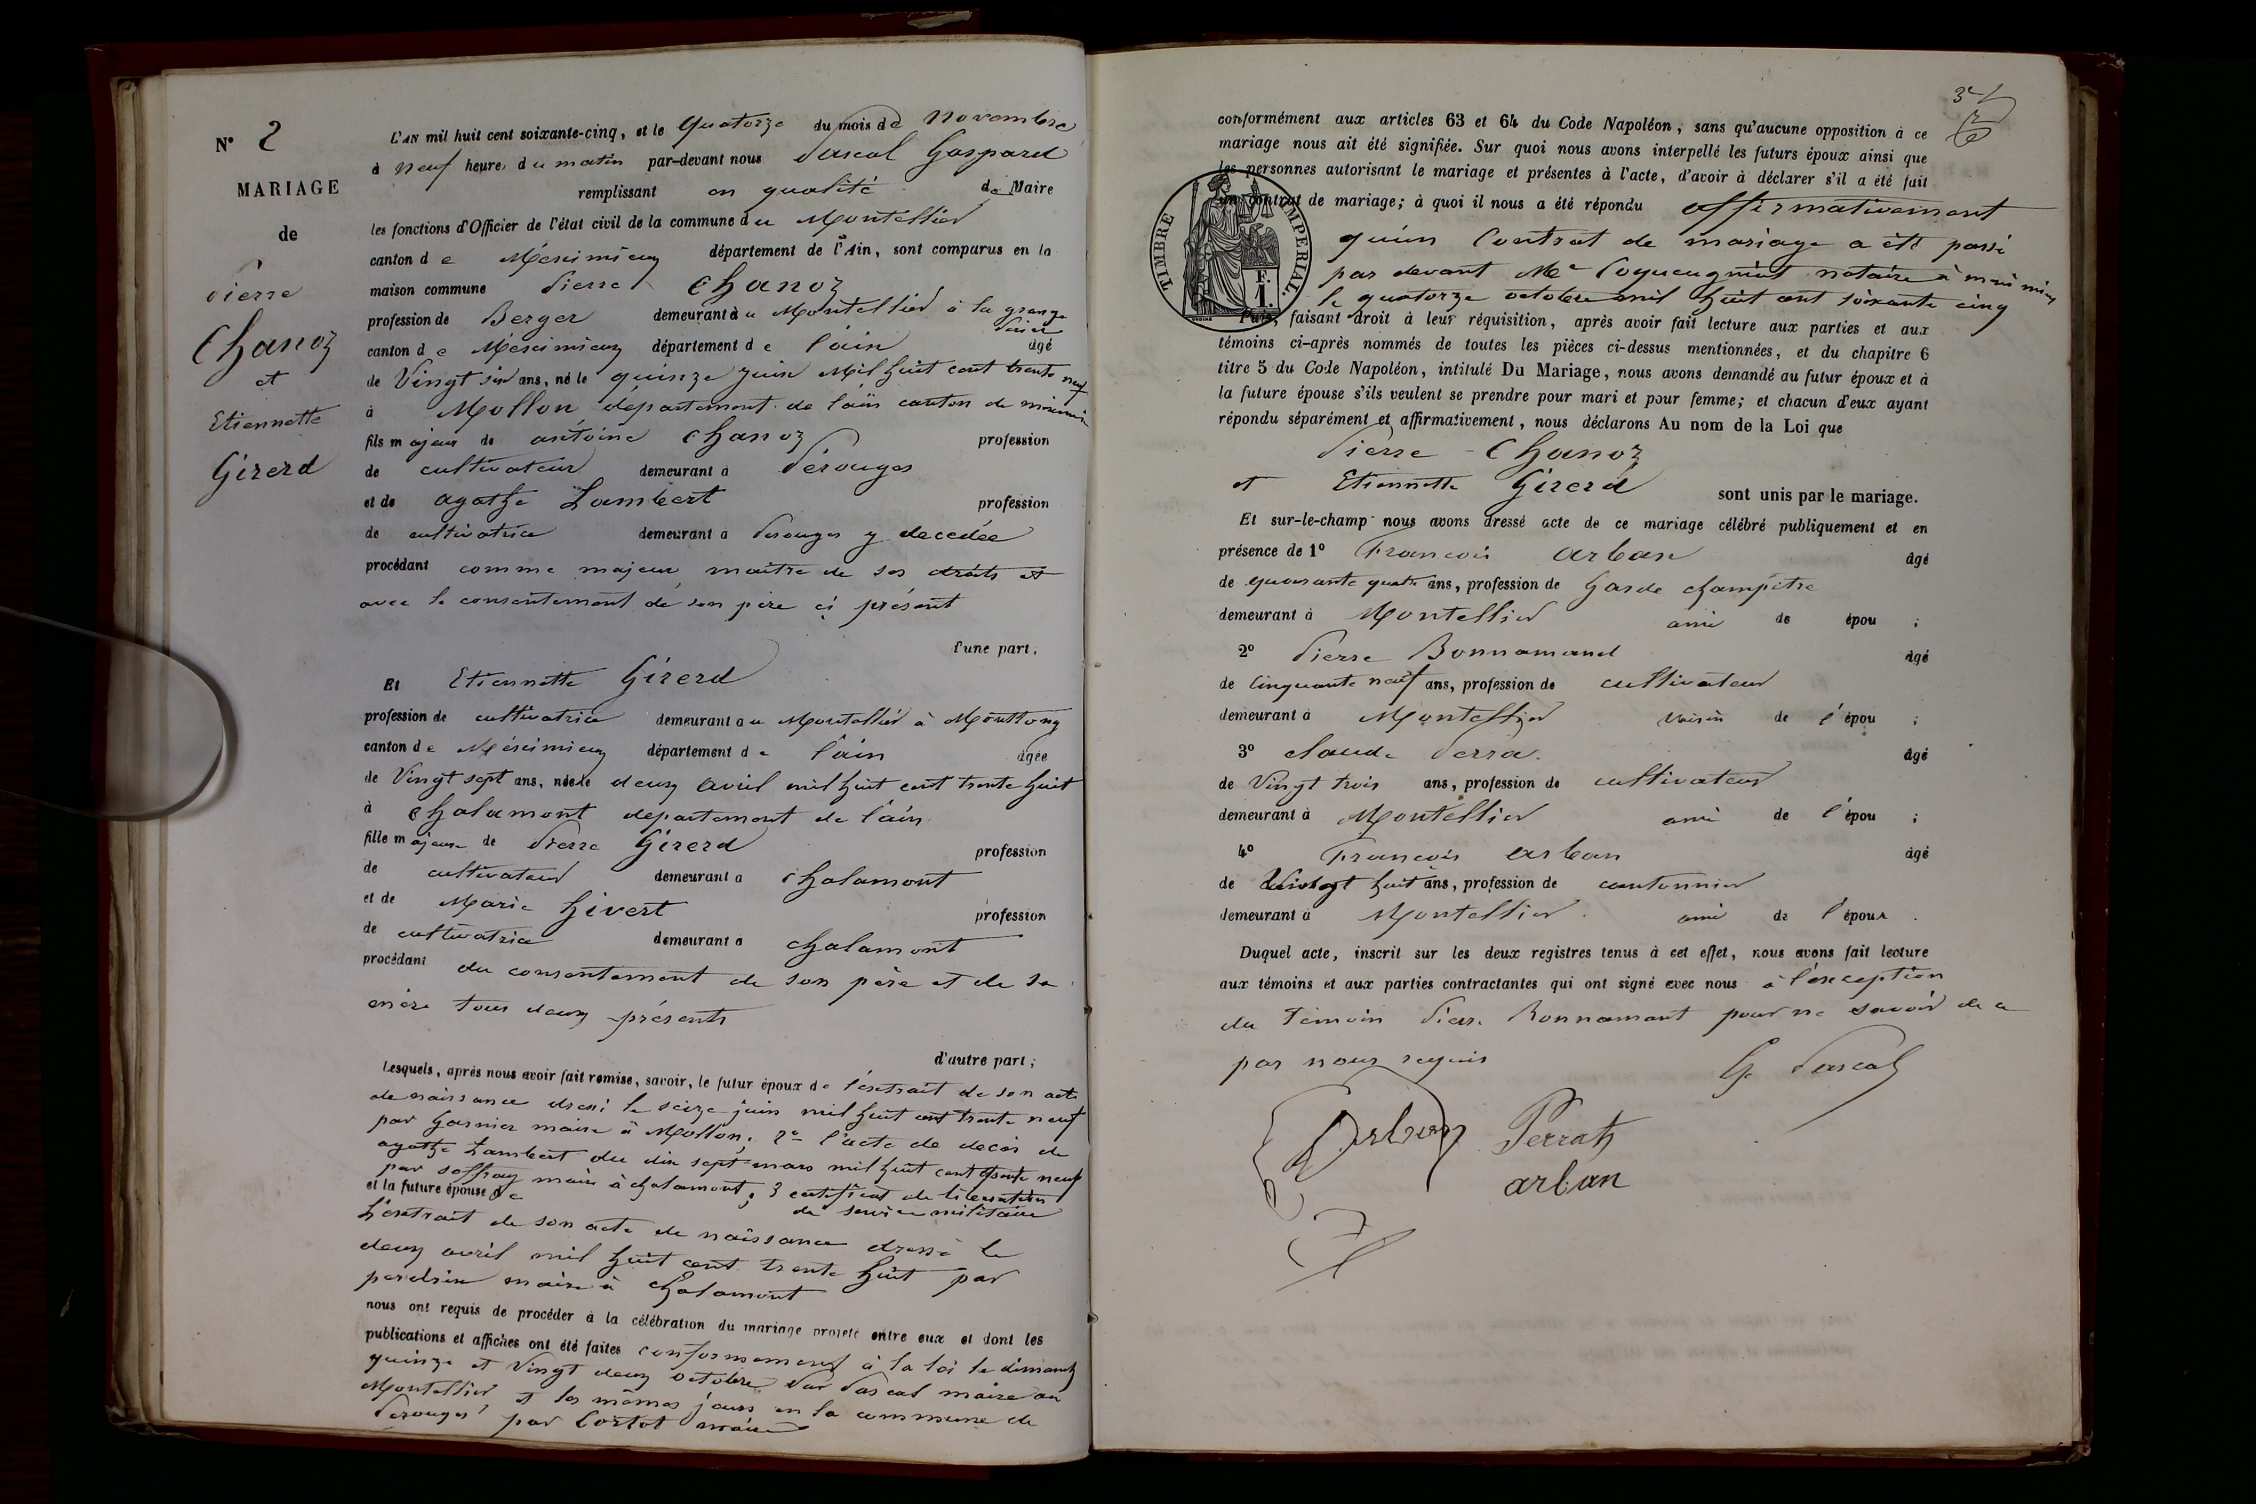 N° 2
MARIAGE
de
Pierre
Chanoz
et
Etiennette
Girerd
L'AN mil huit cent soixante-cinq, et le quatorze du mois de Novembre
à neuf heures du matin par-devant nous Pascal Gaspard
remplissant en qualité de Maire
les fonctions d'Officier de l'état civil de la commune du Montellier
canton de Méximieux département de l'Ain, sont comparus en la
maison commune Pierre Chanoz
profession de Berger demeurant à u Montellier à la grange
canton de Méximieux département de l'ain âgé
de Vingt six ans, né le quinze juin Mil huit cent trente neuf
à Mollon département de l'ain canton de
fils majeur de antoine Chanoz profession
de cultivateur demeurant à Pérouges
et de agathe Lambert profession
de cultivatrice demeurant à Perouges y decedée
procédant comme majeur maitre de ses droits et
avec le consentement de son père çi présent
d'une part,
Et Etiennette Girerd
profession de cultivatrice demeurant au Montellier à
canton de Méximieux département de l'ain âgée
de Vingt sept ans, née le deux avril mil huit cent trente huit
à Chalamont departement de l'ain
fille majeure de Pierre Girerd profession
de cultivateur demeurant à Chalamont
et de Marie Givert profession
de cultivatrice demeurant à Chalamont
procédant du consentement de son père et de sa
mère tous deux présents
d'autre part;
Lesquels, après nous avoir fait remise, savoir, le futur époux de l'extrait de son acte
de naissance dressé le seize juin mil huit cent trente neuf
par Garnier maire à Mollon; 2e l'acte de decès de
agathe Lambert du dix sept mars mil huit cent neuf
par maire à chalamont, 3 certificat de libération
du service militaire
et la future épouse de
L'extrait de son acte de naissance dressé le
deux avril mil huit cent trente huit par
perdrix maire à Chalamont
nous ont requis de procéder à la célébration du mariage projeté entre eux et dont les
publications et affiches ont été faites conformement à la loi le dimanche
quinze et Vingt deux octobre Par Pascal maire au
Montellier et les mêmes jours en la commune de
Pérouges par Cortot maire
conformément aux articles 63 et 64 du Code Napoléon, sans qu'aucune opposition à ce
mariage nous ait été signifiée. Sur quoi nous avons interpellé les futurs époux ainsi que
les personnes autorisant le mariage et présentes à l'acte, d'avoir à déclarer s'il a été fait
un contrat de mariage; à quoi il nous a été répondu affirmativement
qu'un Contrat de mariage a été passé
par devant Me Coqueugniot notaire à
le quatorze octobre mil huit cent soixante cinq
TIMBRE IMPERIAL.
F.
1.
Puis, faisant droit à leur réquisition, après avoir fait lecture aux parties et aux
témoins ci-après nommés de toutes les pièces ci-dessus mentionnées, et du chapitre 6
titre 5 du Code Napoléon, intitulé Du Mariage, nous avons demandé au futur époux et à
la future épouse s'ils veulent se prendre pour mari et pour femme; et chacun d'eux ayant
répondu séparément et affirmativement, nous déclarons Au nom de la Loi que
Pierre - Chanoz
et Etiennette Girerd sont unis par le mariage.
Et sur-le-champ nous avons dressé acte de ce mariage célébré publiquement et en
présence de 1° François arban âgé
de quarante quatre ans, profession de Garde champêtre
demeurant à Montellier ami de épou ;
2° Pierre Bonnamand âgé
de Cinquante neuf ans, profession de cultivateur
demeurant à Montellier voisin de l'épou ;
3° Claude Perra. âgé
de Vingt trois ans, profession de cultivateur
demeurant à Montellier ami de l'épou ;
4° François arban âgé
de huit ans, profession de cantonnier
demeurant à Montellier. ami de l'époux .
Duquel acte, inscrit sur les deux registres tenus à cet effet, nous avons fait lecture
aux témoins et aux parties contractantes qui ont signé avec nous à l'exception
du Témoin Pierre Bonnamant pour ne savoir de ce
par nous requis
G. Pascal
Arban Perrat
arban